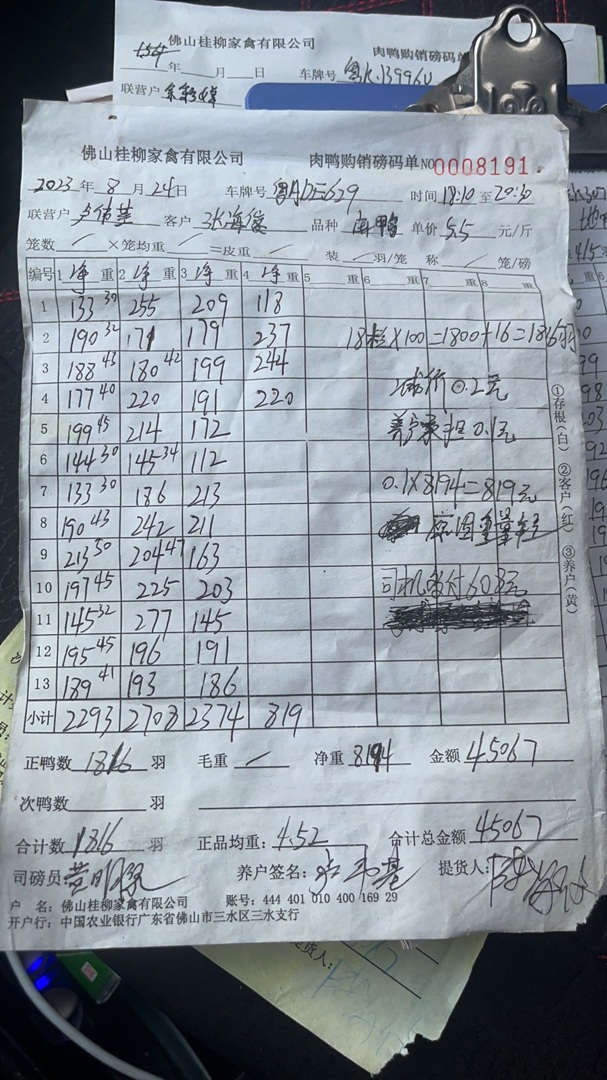 佛山桂柳家禽有限公司 肉鸭购销磅码单
年 月 日 车牌号
联营户
佛山桂柳家禽有限公司 肉鸭购销磅码单 NO 0008191
2023年 8月 24日 车牌号 粤ADE629 时间 18:10 至 20:30
联营户 卢伟基 客户 张海俊 品种 南鸭 单价 5.5 元/斤
笼数 / ×笼均重 / =皮重 / 装 / 羽/笼 称 / 笼/磅
编号 1 净重 2 净重 3 净重 4 净重 5 重 6 重 7 重 8 重
1 133 30 255 209 118
2 190 32 171 179 237 18拒×100=1800+16=1816羽
3 188 43 180 42 199 244
4 177 40 220 191 220 减价0.2元
5 199 45 214 172 养户承担0.1元
6 144 30 145 34 112
7 133 30 186 213 0.1×8194=819元
8 190 43 242 211 原因重量
9 213 50 204 47 163
10 197 45 225 203 司机 付 608元
11 145 32 277 145
12 195 45 196 191
13 189 41 193 186
小计 2293 2708 2374 819
①存根(白) ②客户(红) ③养户(黄)
正鸭数 1816 羽 毛重 / 净重 8194 金额 45067
次鸭数 羽
合计数 1816 羽 正品均重: 4.52 合计总金额 45067
司磅员 养户签名: 卢伟基 提货人:
户 名: 佛山桂柳家禽有限公司 账号: 444 401 010 400 169 29
开户行: 中国农业银行广东省佛山市三水区三水支行
提货人: